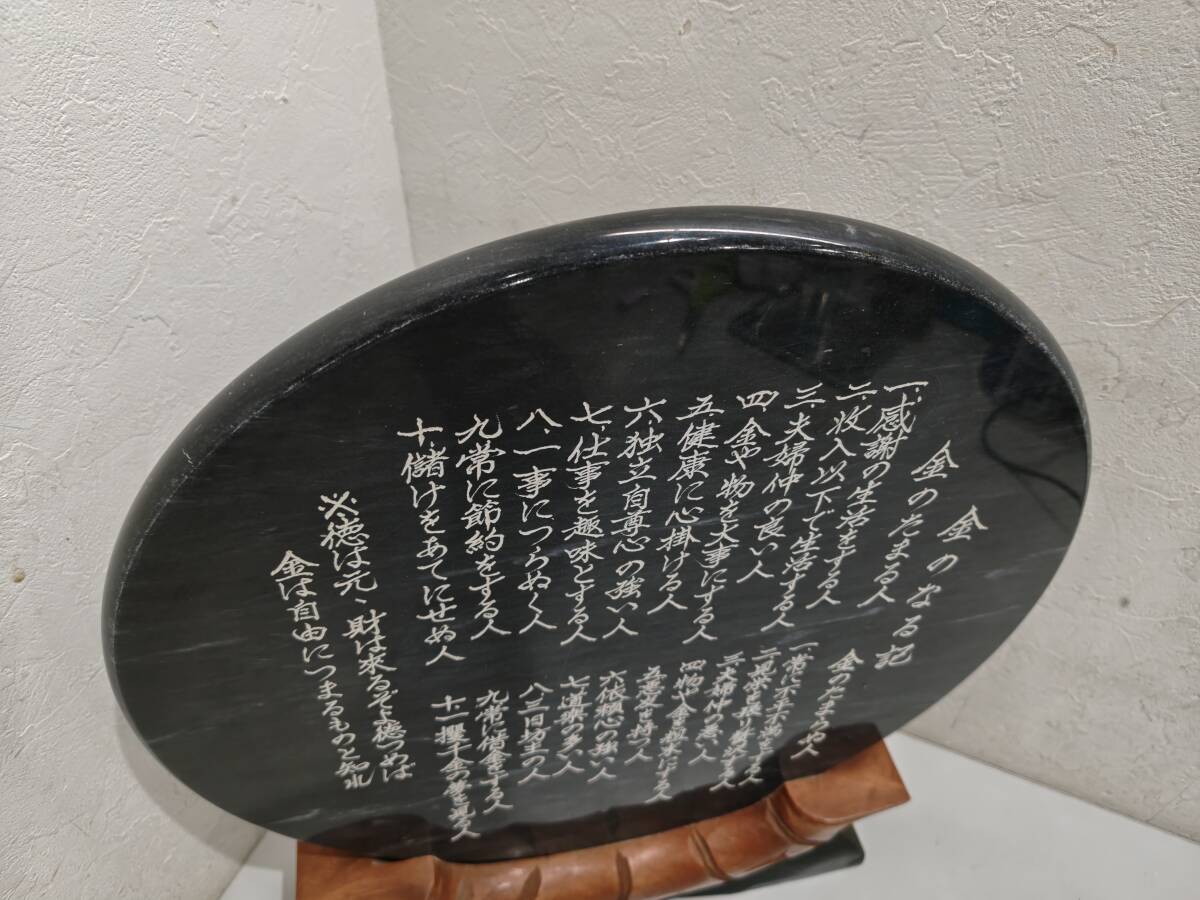 金のなる記
金のたまる人
一、感謝の生活をする人
二、收入以下で生活する人
三、夫婦仲の良い人
四、金や物を大事にする人
五、健康に心掛ける人
六、独立自尊心の強い人
七、仕事を趣味とする人
八、一事につらぬく人
九、常に節約をする人
十、儲けをあてにせぬ人
金のたまらぬ人
一、常に不平不満を言う人
二、見栄を張り贅沢する人
三、夫婦仲の悪い人
四、物や金を粗末にする人
五、悪友を持つ人
六、依頼心の強い人
七、道楽の多い人
八、三日坊主の人
九、常に借金をする人
十、一攫千金の夢を見る人
※徳は元、財は来るぞよ徳つめば
金は自由につまるものと知れ